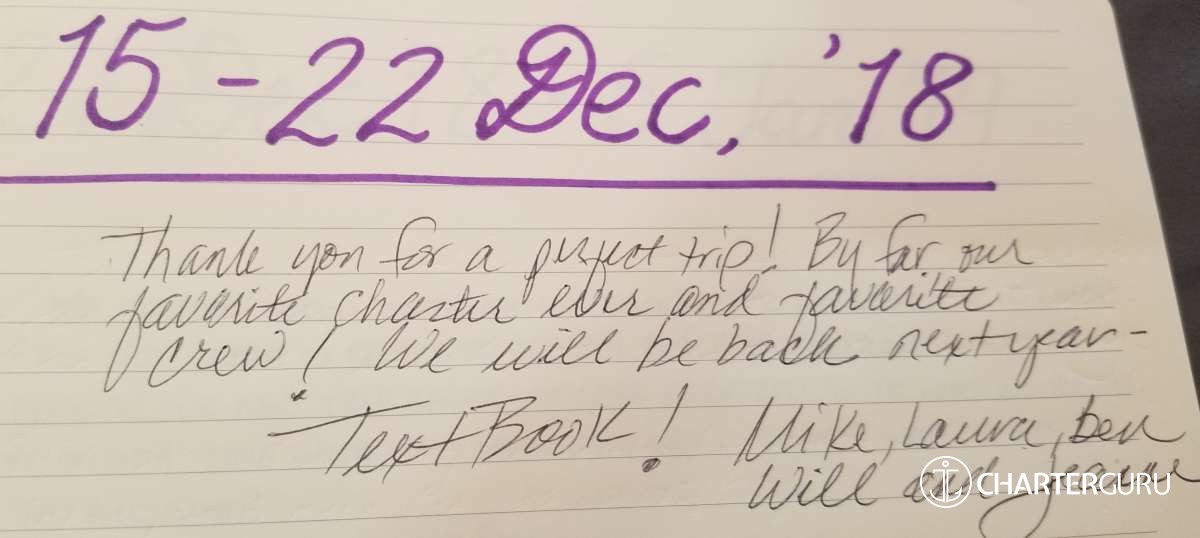 15 - 22 Dec, '18
Thank you for a perfect trip! By far our
favorite charter ever and favorite
crew! We will be back next year -
TextBook! Mike, Laura, Ben
Will and
CHARTERGURU